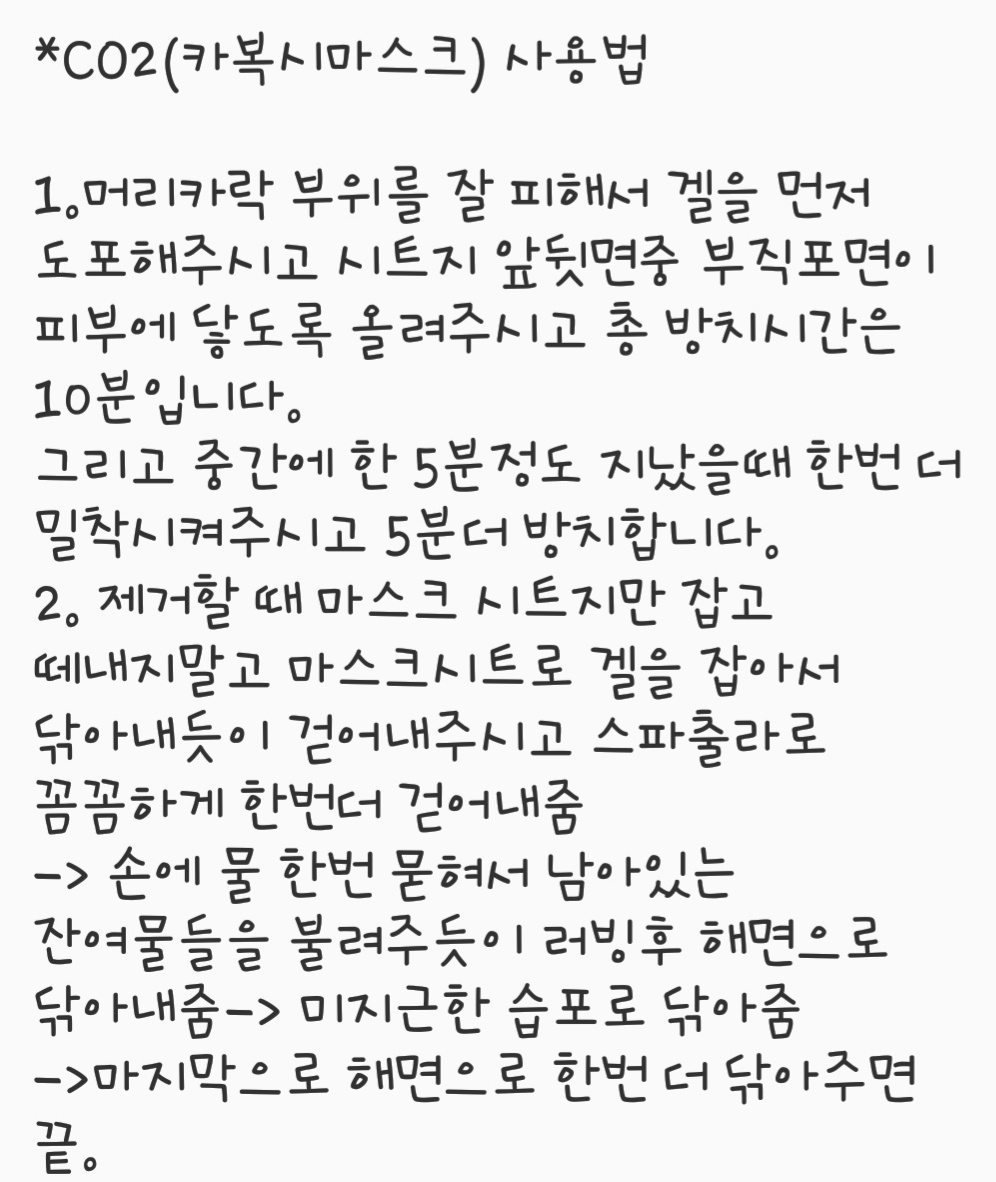 *CO2(카복시마스크) 사용법
1.머리카락 부위를 잘 피해서 겔을 먼저
도포해주시고 시트지 앞뒷면중 부직포면이
피부에 닿도록 올려주시고 총 방치시간은
10분입니다.
그리고 중간에 한 5분정도 지났을때 한번 더
밀착시켜주시고 5분더 방치합니다.
2. 제거할 때 마스크 시트지만 잡고
떼내지말고 마스크시트로 겔을 잡아서
닦아내듯이 걷어내주시고 스파출라로
꼼꼼하게 한번더 걷어내줌
-> 손에 물 한번 묻혀서 남아있는
잔여물들을 불려주듯이 러빙후 해면으로
닦아내줌-> 미지근한 습포로 닦아줌
->마지막으로 해면으로 한번 더 닦아주면
끝.